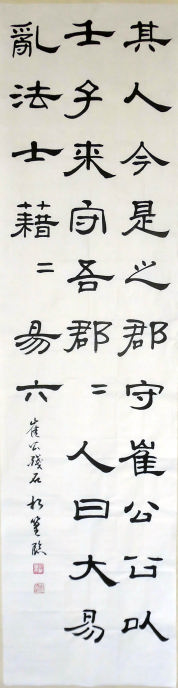 其人今是之郡守崔公公以
壬子來守吾郡〻人曰大易
亂法士藉〻易六
崔公殘石 臨